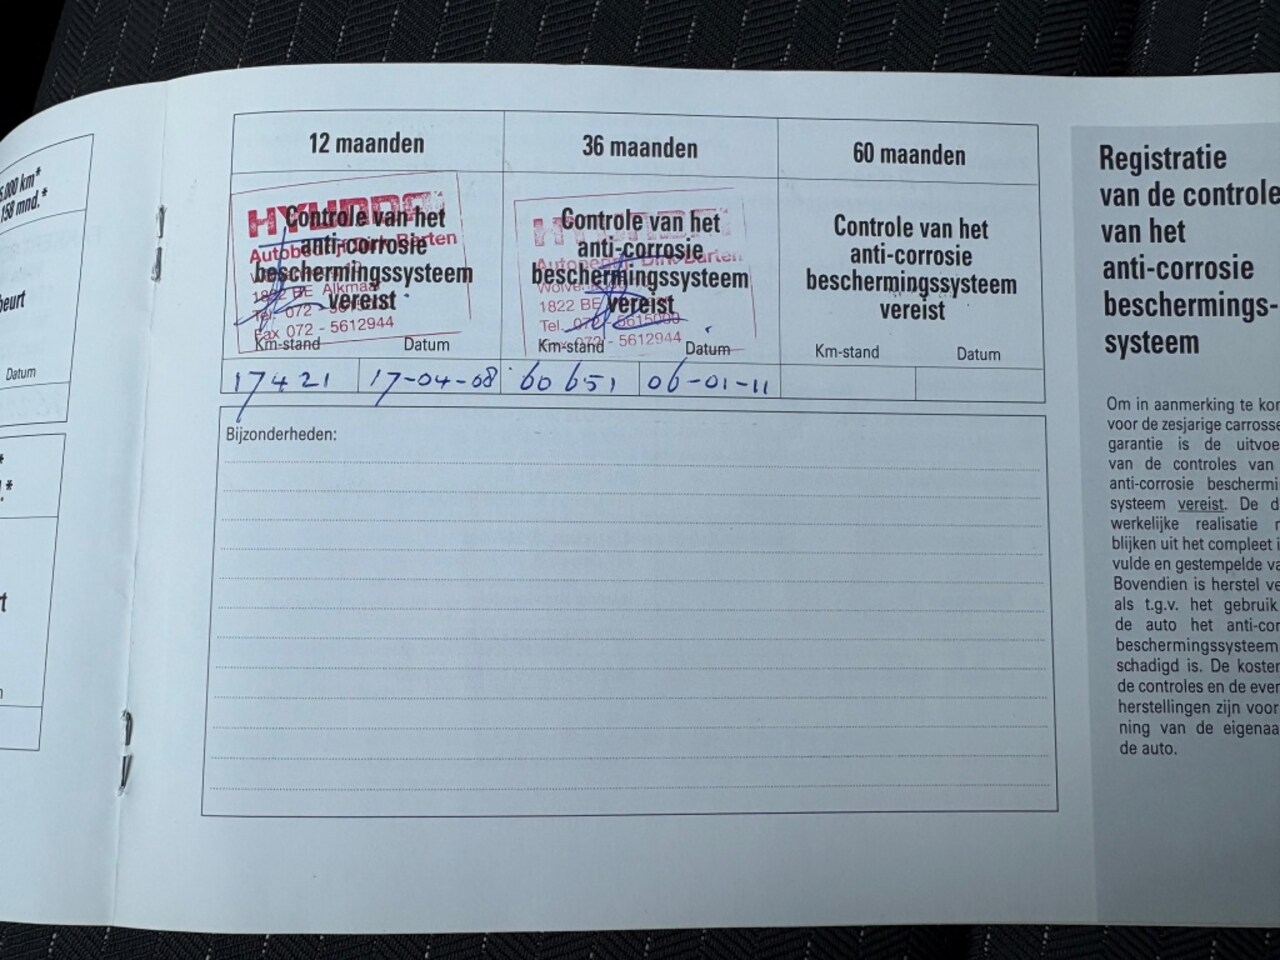 5.000 km*
158 mnd.*
eurt
Datum
12 maanden
36 maanden
60 maanden
HYUNDAI
Controle van het
anti-corrosie
beschermingssysteem
vereist
Autobedrijf Dirk Barten
1822 BE Alkmaar
Tel. 072 -
Fax 072 - 5612944
Km-stand
Datum
17421
17-04-08
HYUNDAI
Controle van het
anti-corrosie
beschermingssysteem
vereist
Autobedrijf Dirk Barten
1822 BE
Tel. 072 - 5615000
072 - 5612944
Km-stand
Datum
60651
06-01-11
Controle van het
anti-corrosie
beschermingssysteem
vereist
Km-stand
Datum
Bijzonderheden:
Registratie
van de controle
van het
anti-corrosie
beschermings-
systeem
Om in aanmerking te kom
voor de zesjarige carrosse
garantie is de uitvoe
van de controles van
anti-corrosie beschermi
systeem vereist. De d
werkelijke realisatie
blijken uit het compleet i
vulde en gestempelde va
Bovendien is herstel ve
als t.g.v. het gebruik
de auto het anti-cor
beschermingssysteem
schadigd is. De koste
de controles en de ever
herstellingen zijn voor
ning van de eigenaa
de auto.